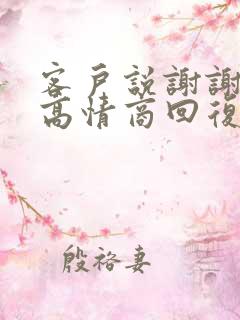 客戶説謝謝
高情商回復
殷袼妻